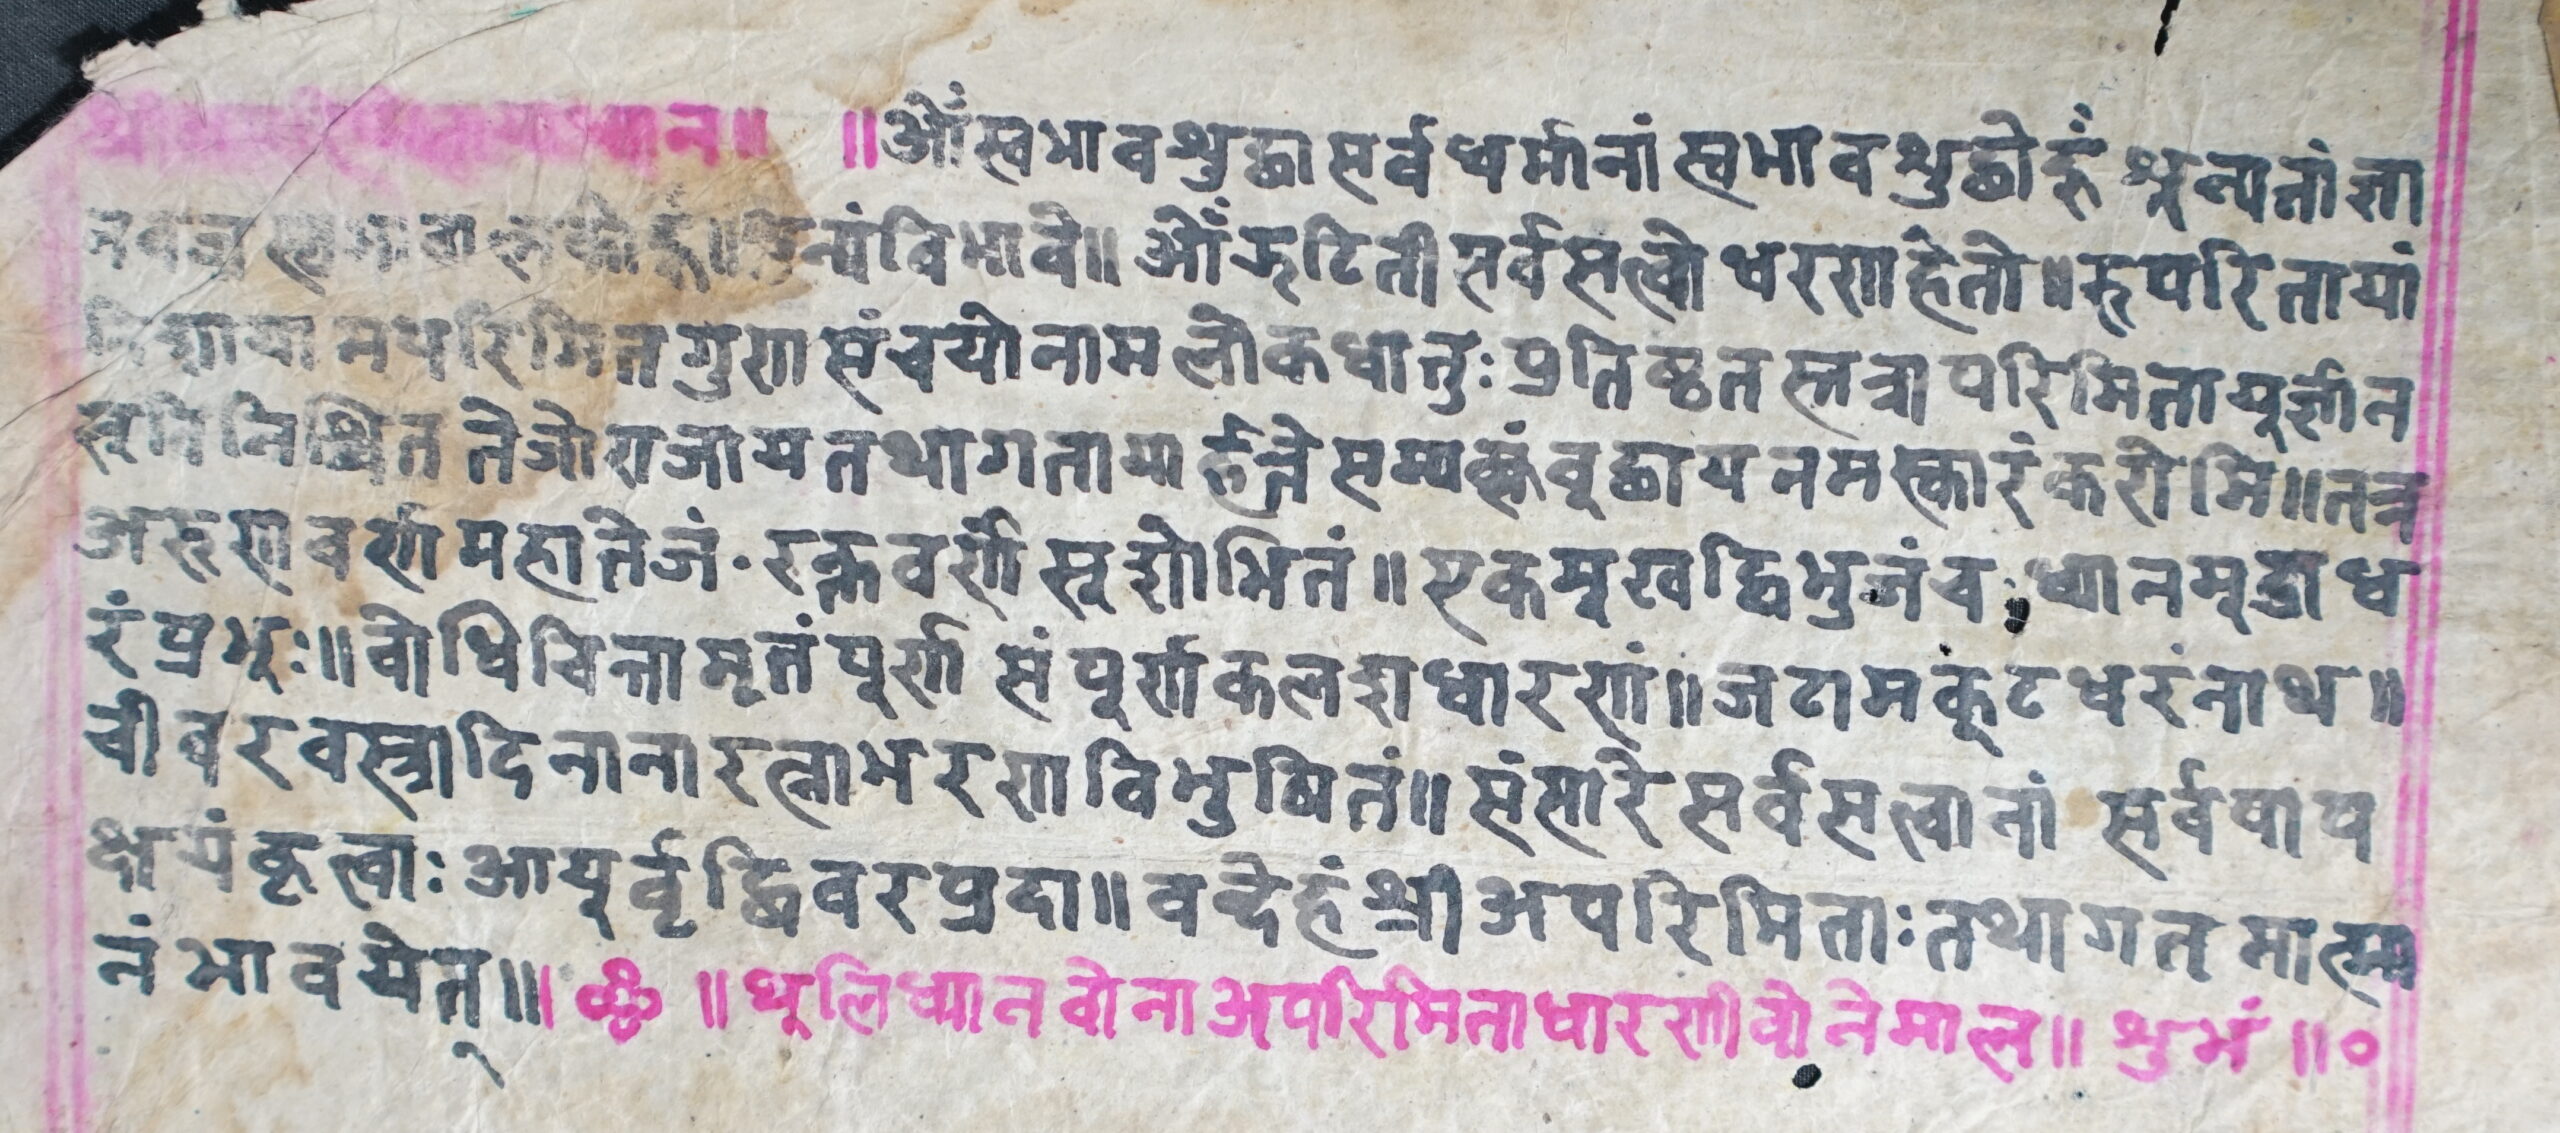 ॥ ॥ओँ स्वभावशुद्धा सर्वधर्मानां स्वभावशुद्धोहँ शून्यतां ज्ञा
नवज्र स्वाभावात्मकोहँ॥ विभावे॥ ओँ झटिती सर्वसत्वोधरणहेतो॥ रूपरितायां
दिशाया मपरिमितगुण संचयो नाम लोकधातुः प्रतिष्ठत स्तत्रापरिमितायूर्ज्ञान
सुविनिश्चित तेजोराजाय तथागतायार्हते सम्यक्सं वूद्धाय नमस्कारं करोमि॥ तत्र
अरुणवर्ण महातेजं · रक्तवर्ण सूशोभितं॥ एकमूखद्विभुजंच · ध्यानमूद्राध
रं प्रभूः॥ वोधिचित्तामृतं पूर्ण संपूर्णकलशधारणं॥ जटामकूटधरं नाथ॥
चीवरवस्त्रादि नानारत्नाभरणविभुषितं॥ संसारे सर्वसत्वानां सर्वपाप
क्षयं कृत्वाः आयूर्वृद्धिवरप्रदा॥ वन्देहं श्री अपरिमिताः तथागतमात्मा
नं भावयेत्॥। ॐ ॥ थूलिध्यान वोना अपरिमिताधारणी वोनेमाल॥ शुभं ॥०